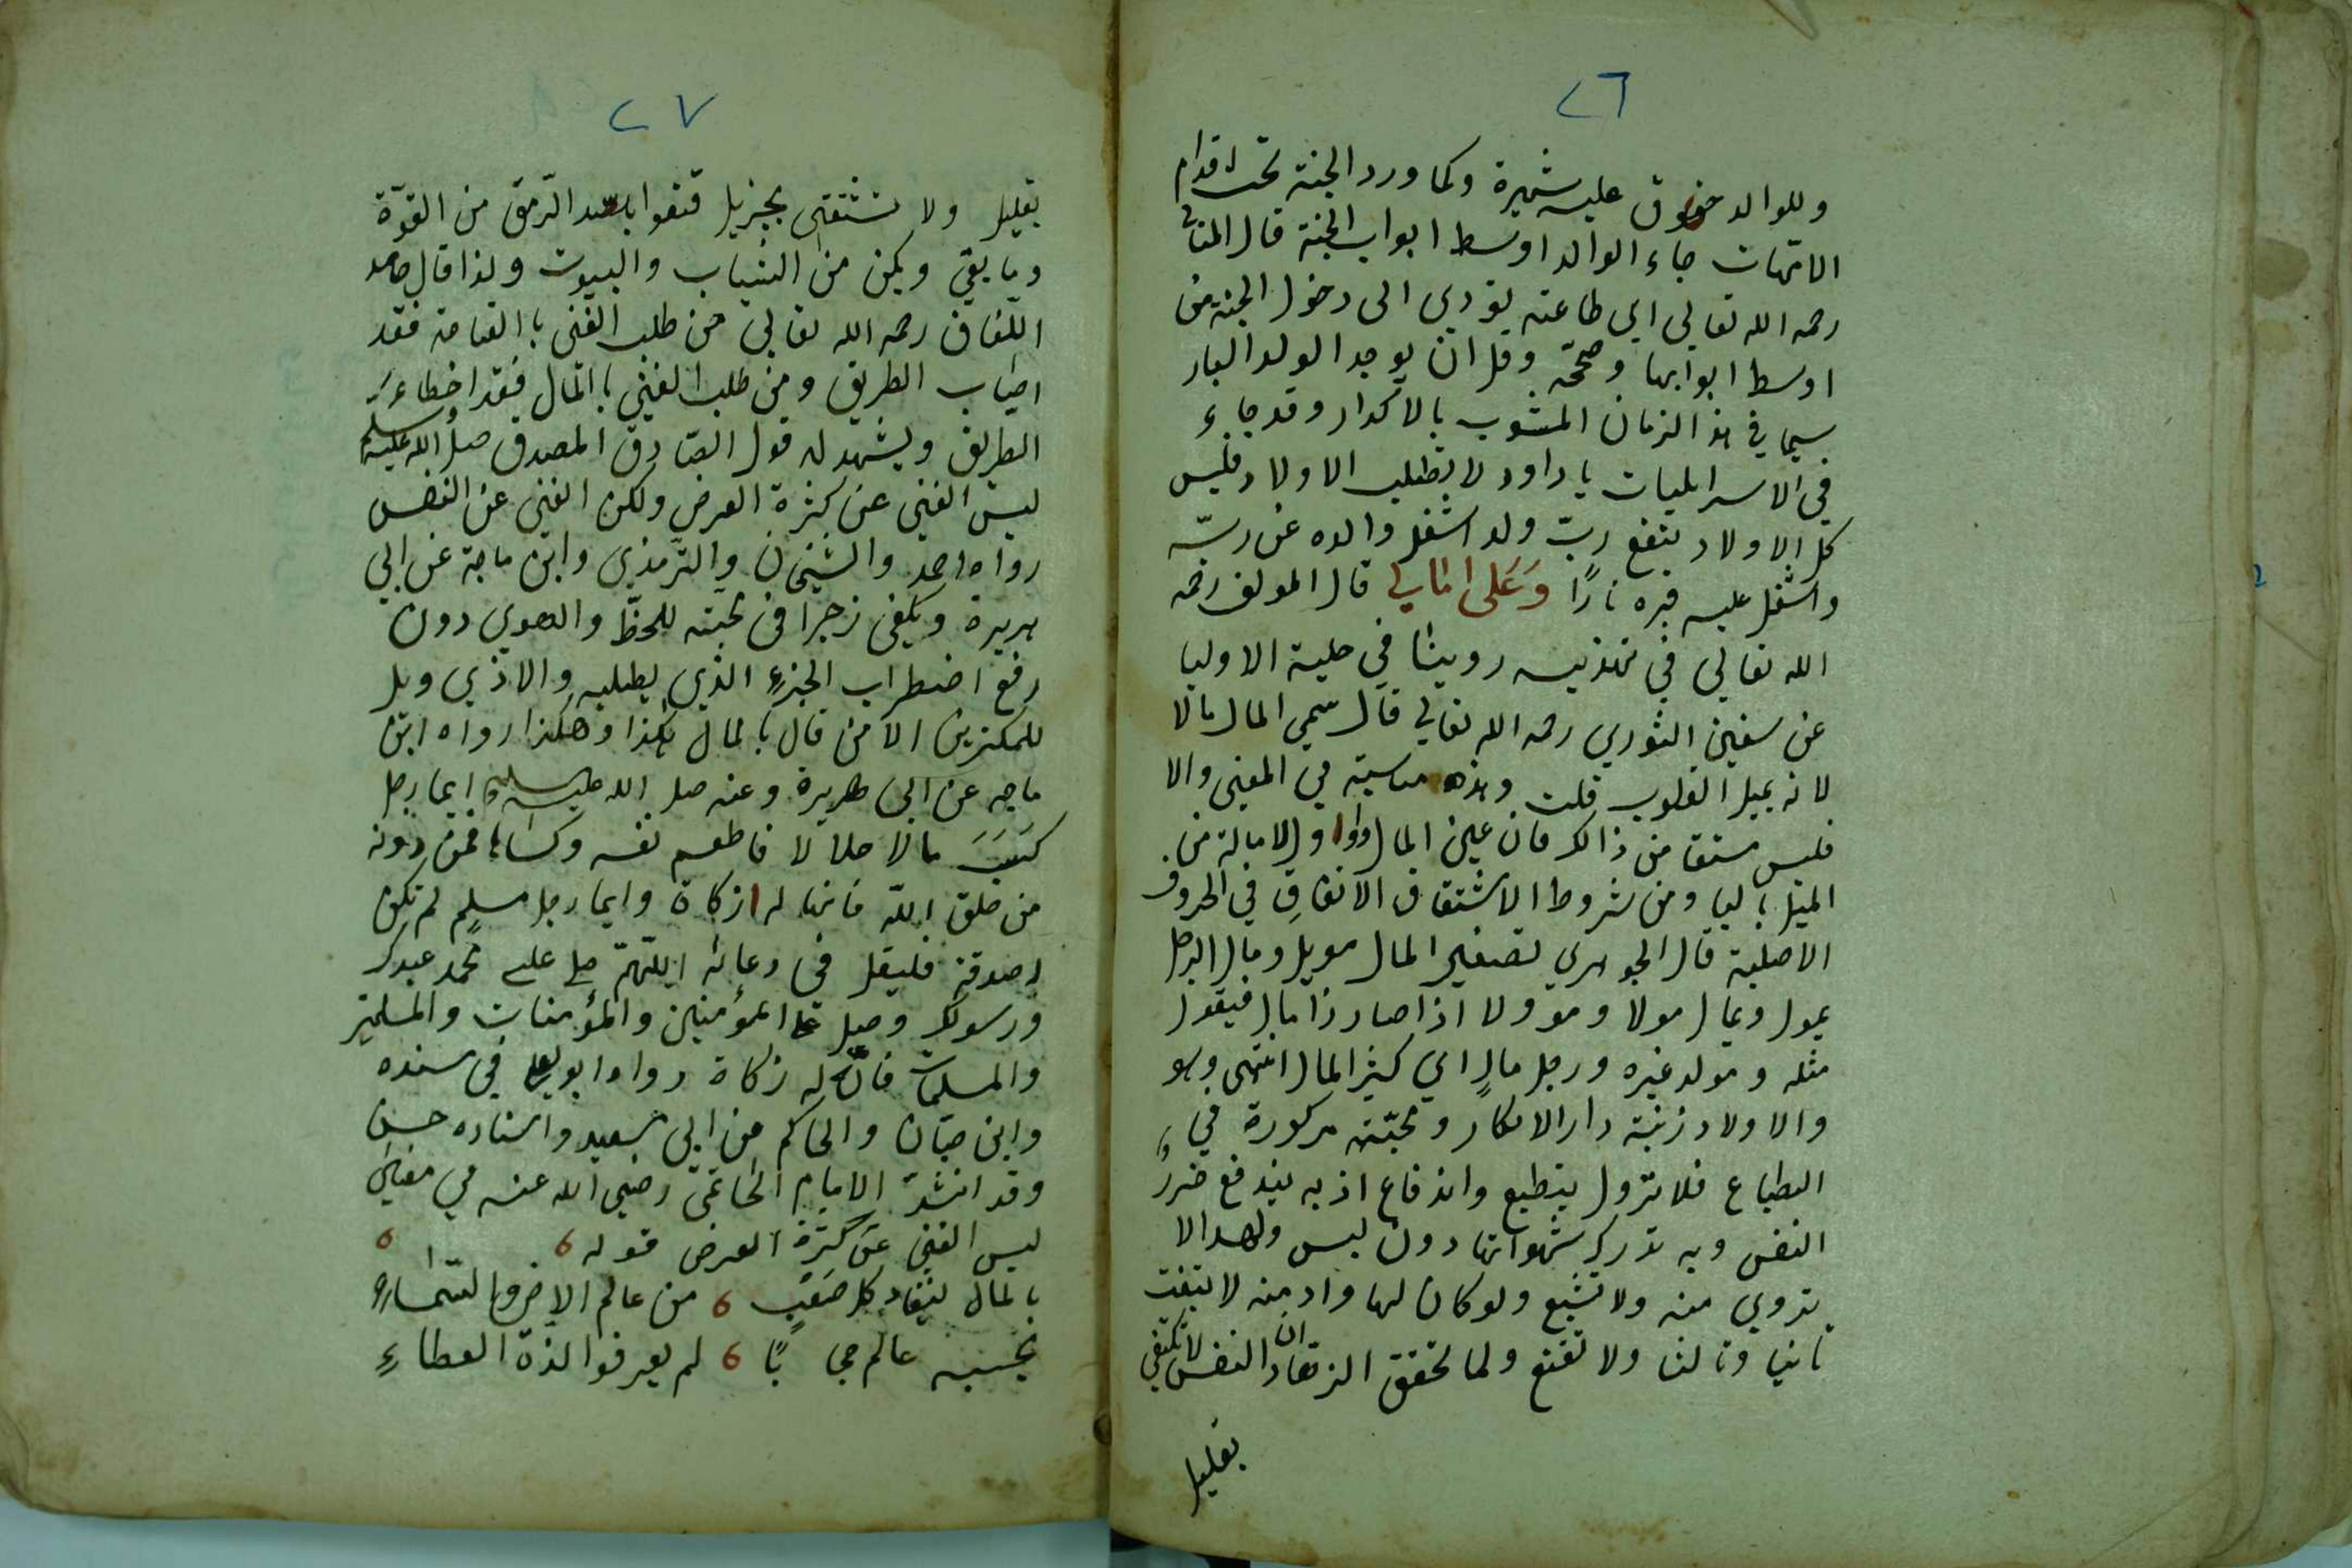 ٢٦
وللوالد حقوق عليه شهيرة وكما ورد الجنة تحت اقدام
الامهات جاء الوالد اوسط ابواب الجنة قال المناوي
رحمه الله تعالي اي طاعته يؤدي الى دخول الجنة من
اوسط ابوابها وصححه وقل ان يوجد الولد البار
سيما في هذا الزمان المشوب بالاكدار وقد جاء
في الاسرايليات يا داود لا تطلب الاولاد فليس
كل الاولاد ينفع ربّ ولد اشغل والده عن ربّه
واشعل عليه قبره نارًا وَعَلى المال قال المولف رحمه
الله تعالي في تهذيبه روينا في حلية الاوليا
عن سفين الثوري رحمه الله تعالي قال سمي المال مالا
لانه يميل القلوب قلت وهذه مناسبة في المعني والا
فليس مشتقا من ذالك فان عين المال واوا والامالة من
الميل باليا ومن شروط الاشتقاق الاتفاق في الحروف
الاصلية قال الجوهري تصغير المال مويل ومال الرجل
يمول ويمال مولا ومؤولا اذا صار ذا مال فيقول
مثله وموله غيره ورجل مالٍ اي كثير المال انتهى وهو
والاولاد زينة دار الاكدار ومحبّته مركوزة في
الطباع فلا تزول بتطبع واندفاع اذ به يندفع ضررُ
النفس وبه تدرك شهواتها دون لبس ولهذا لا
تروي منه ولا تشبع ولو كان لها واد منه لابتغت
ثانيا وثالثا ولا تقنع ولما تحقق الزهاد ان النفس لا تكتفي
بقليل
٢٧
بقليل ولا تشتفى بجزيل قنعوا بسد الرّمق من القوّة
وما يقي ويكن من الثياب والبيوت ولذا قال حامد
اللّفاف رحمه الله تعالى من طلب الغنى بالقناعة فقد
اصاب الطريق ومن طلب الغني بالمال فقد اخطاء
الطريق ويشهد له قول الصّادق المصدق صلى الله عليه وسلم
ليس الغني عن كثرة العرض ولكن الغنى عن النفس
رواه احمد والشيخان والترمذي وابن ماجة عن ابي
هريرة ويكفى زجرا في محبّته للحظّ والهوي دون
رفع اضطراب الجزء الذي يطلبه والاذي ويل
للمكثرين الا من قال بالمال هكذا وهكذا رواه ابن
ماجه عن ابى هريرة وعنه صل الله عليه وسلم ايما رجل
كسَبَ مالا حلالا فاطعم نفسه وكساها فمن دونه
من خلق اللّه فانها له زكاة وايما رجل مسلمٍ لم تكن
له صدقة فليقل في دعائه اللّهمّ صل على محمد عبدك
ورسولك وصل على المؤمنين والمؤمنات والمسلمين
والمسلمات فانّها له زكاة رواه ابو يعلى في سنده
وابن حبّان والحاكم عن ابي سعيد واسناده حسن
وقد انشد الامام الحاتميّ رضي الله عنه في معنى
ليس الغني عن كثرة العرض قوله
بالمال ينقاد كل صَعبٍ من عالم الارض والسّماء
يحسبه عالم حجابًا لم يعرفوا لذّة العطاء